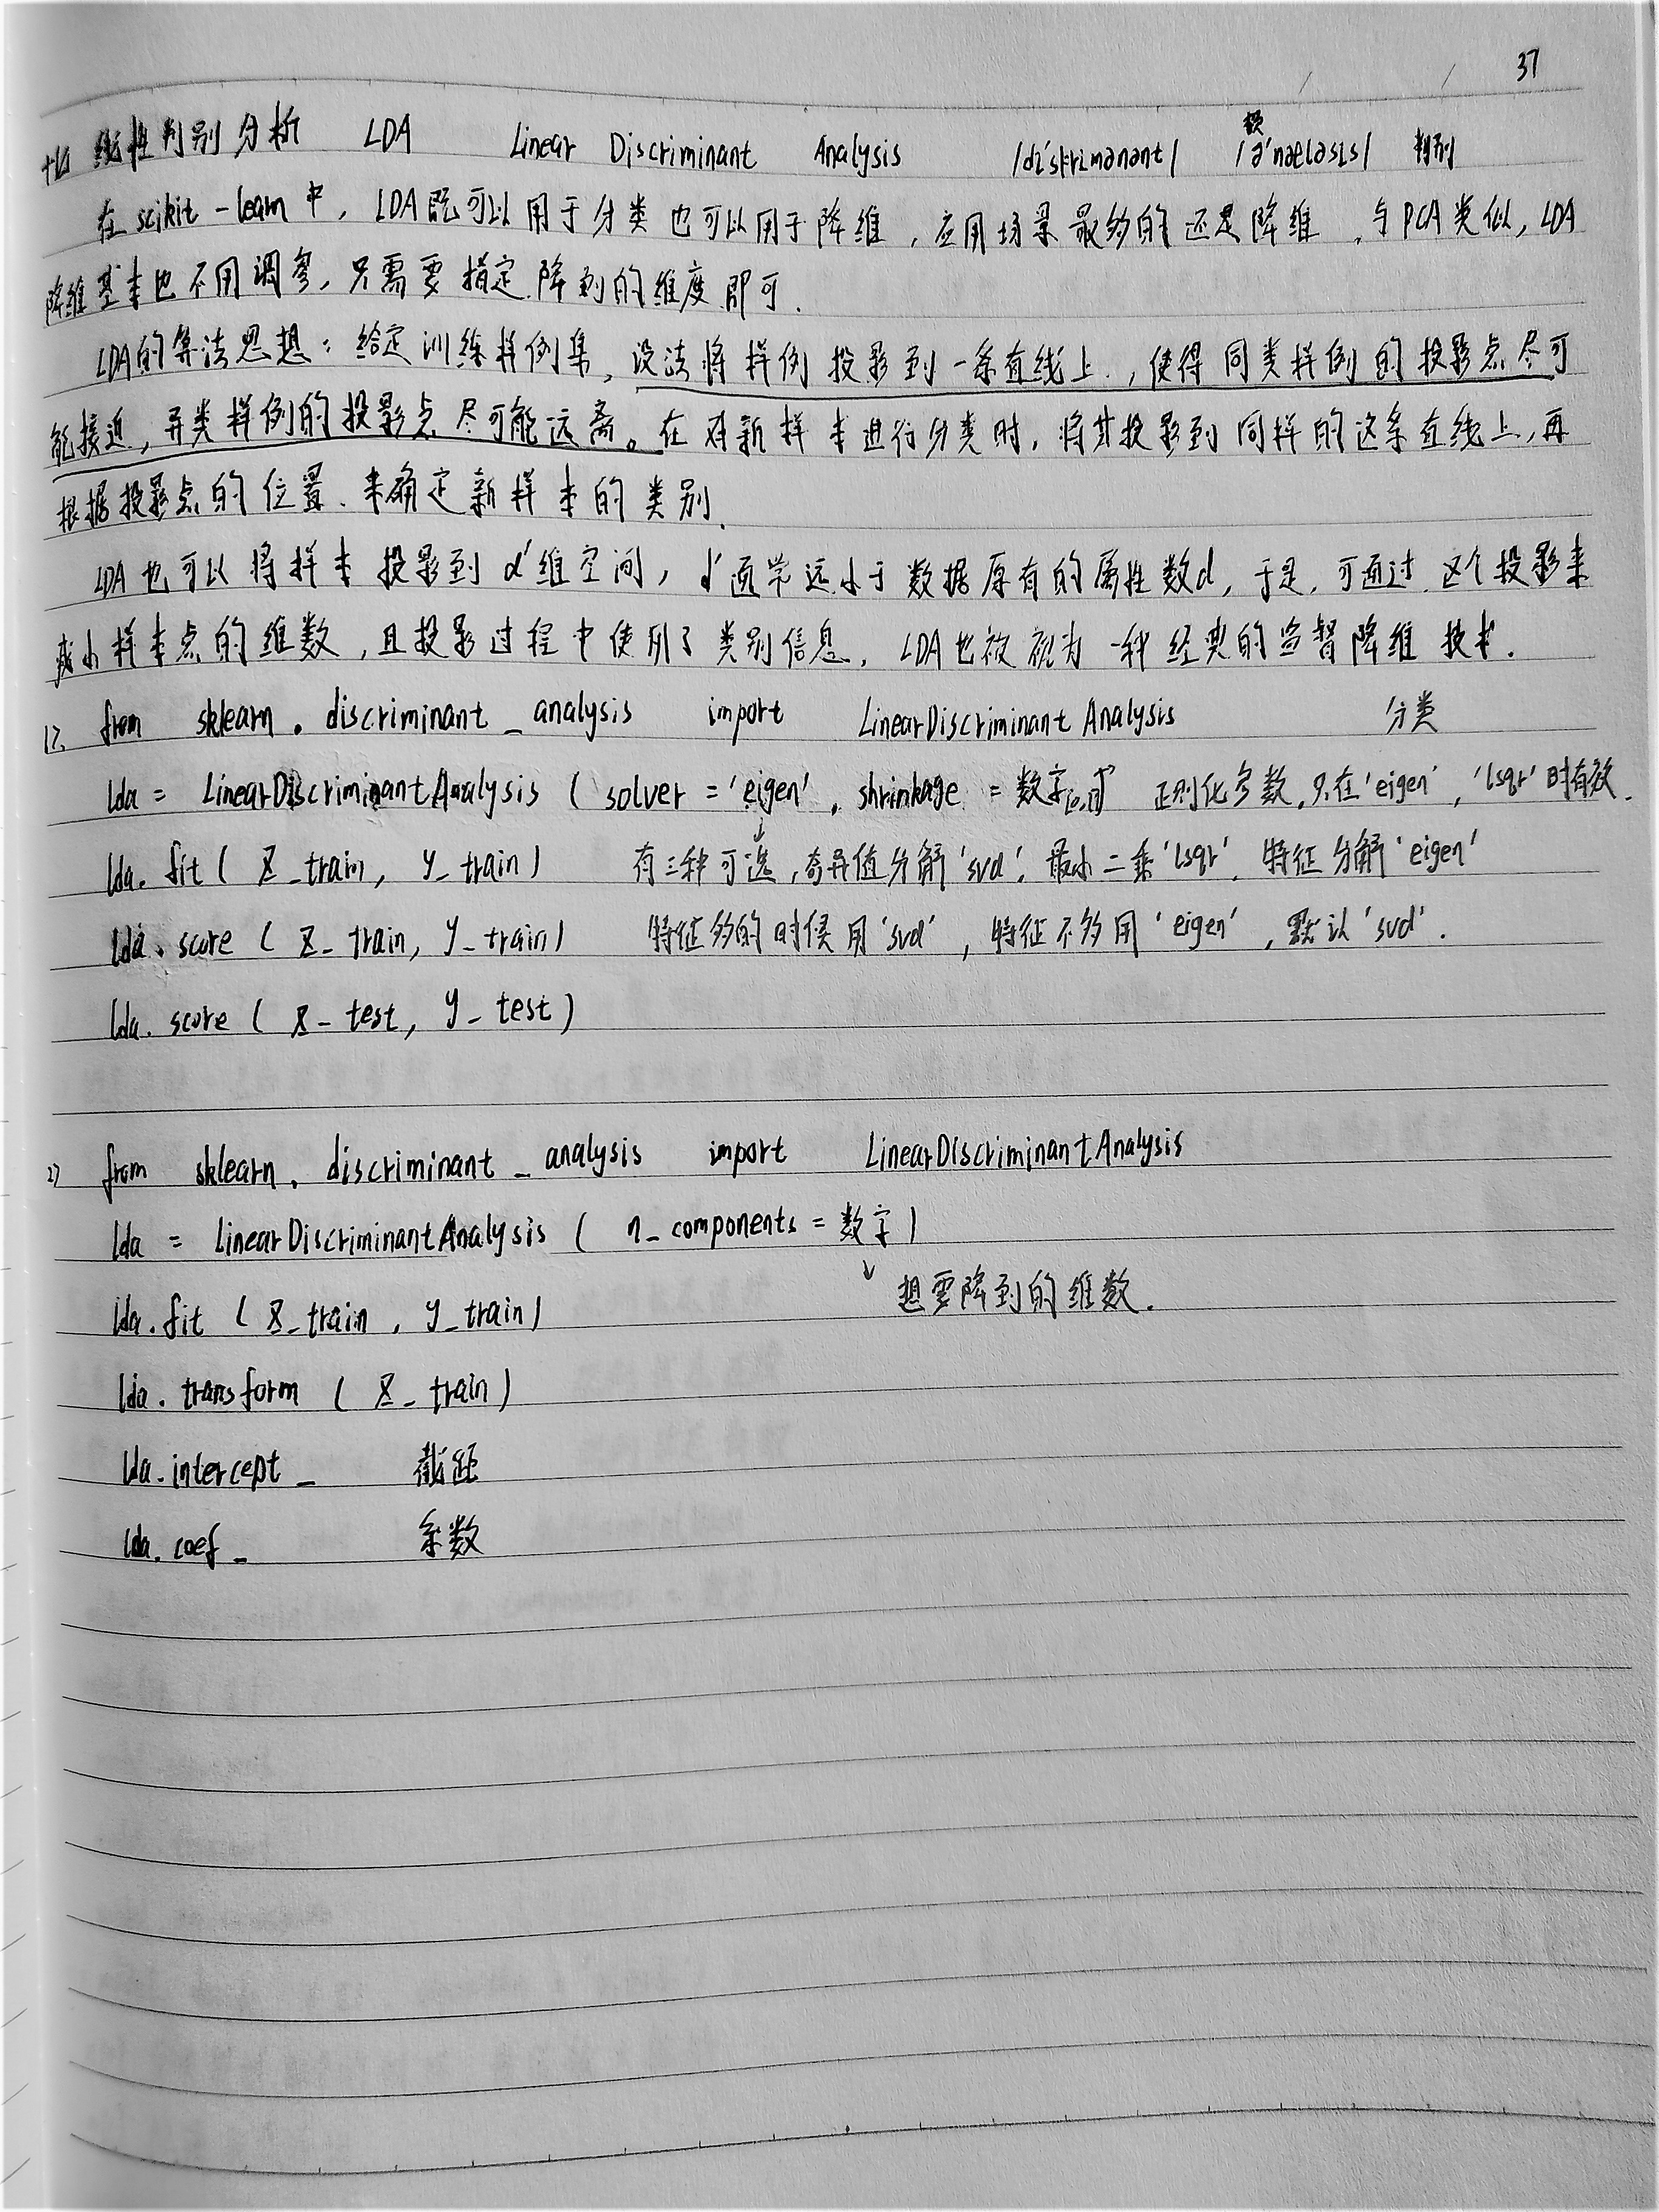 37
线性判别分析 LDA Linear Discriminant Analysis /dɪ'skrɪmənənt/ /ə'næləsɪs/ 判别
在 scikit-learn 中，LDA既可以用于分类也可以用于降维，应用场景最多的还是降维，与PCA类似，LDA
降维基本也不用调参，只需要指定降到的维度即可．
LDA的算法思想：给定训练样例集，设法将样例投影到一条直线上，使得同类样例的投影点尽可
能接近，异类样例的投影点尽可能远离。在对新样本进行分类时，将其投影到同样的这条直线上，再
根据投影点的位置来确定新样本的类别．
LDA也可以将样本投影到d'维空间，d'通常远小于数据原有的属性数d，于是，可通过这个投影来
减小样本点的维数，且投影过程中使用了类别信息，LDA也被视为一种经典的监督降维技术．
1) from sklearn.discriminant_analysis import LinearDiscriminantAnalysis 分类
lda = LinearDiscriminantAnalysis ( solver = 'eigen', shrinkage = 数字[0,1]) 正则化参数，只在'eigen'，'lsqr'时有效．
lda.fit ( X_train, y_train) 有三种可选，奇异值分解'svd'，最小二乘'lsqr'，特征分解'eigen'
lda.score ( X_train, y_train) 特征多的时候用'svd'，特征不多用'eigen'，默认'svd'．
lda.score ( X_test, y_test)
2) from sklearn.discriminant_analysis import LinearDiscriminantAnalysis
lda = LinearDiscriminantAnalysis ( n_components = 数字)
↓ 想要降到的维数．
lda.fit ( X_train, y_train)
lda.transform ( X_train)
lda.intercept_ 截距
lda.coef_ 系数